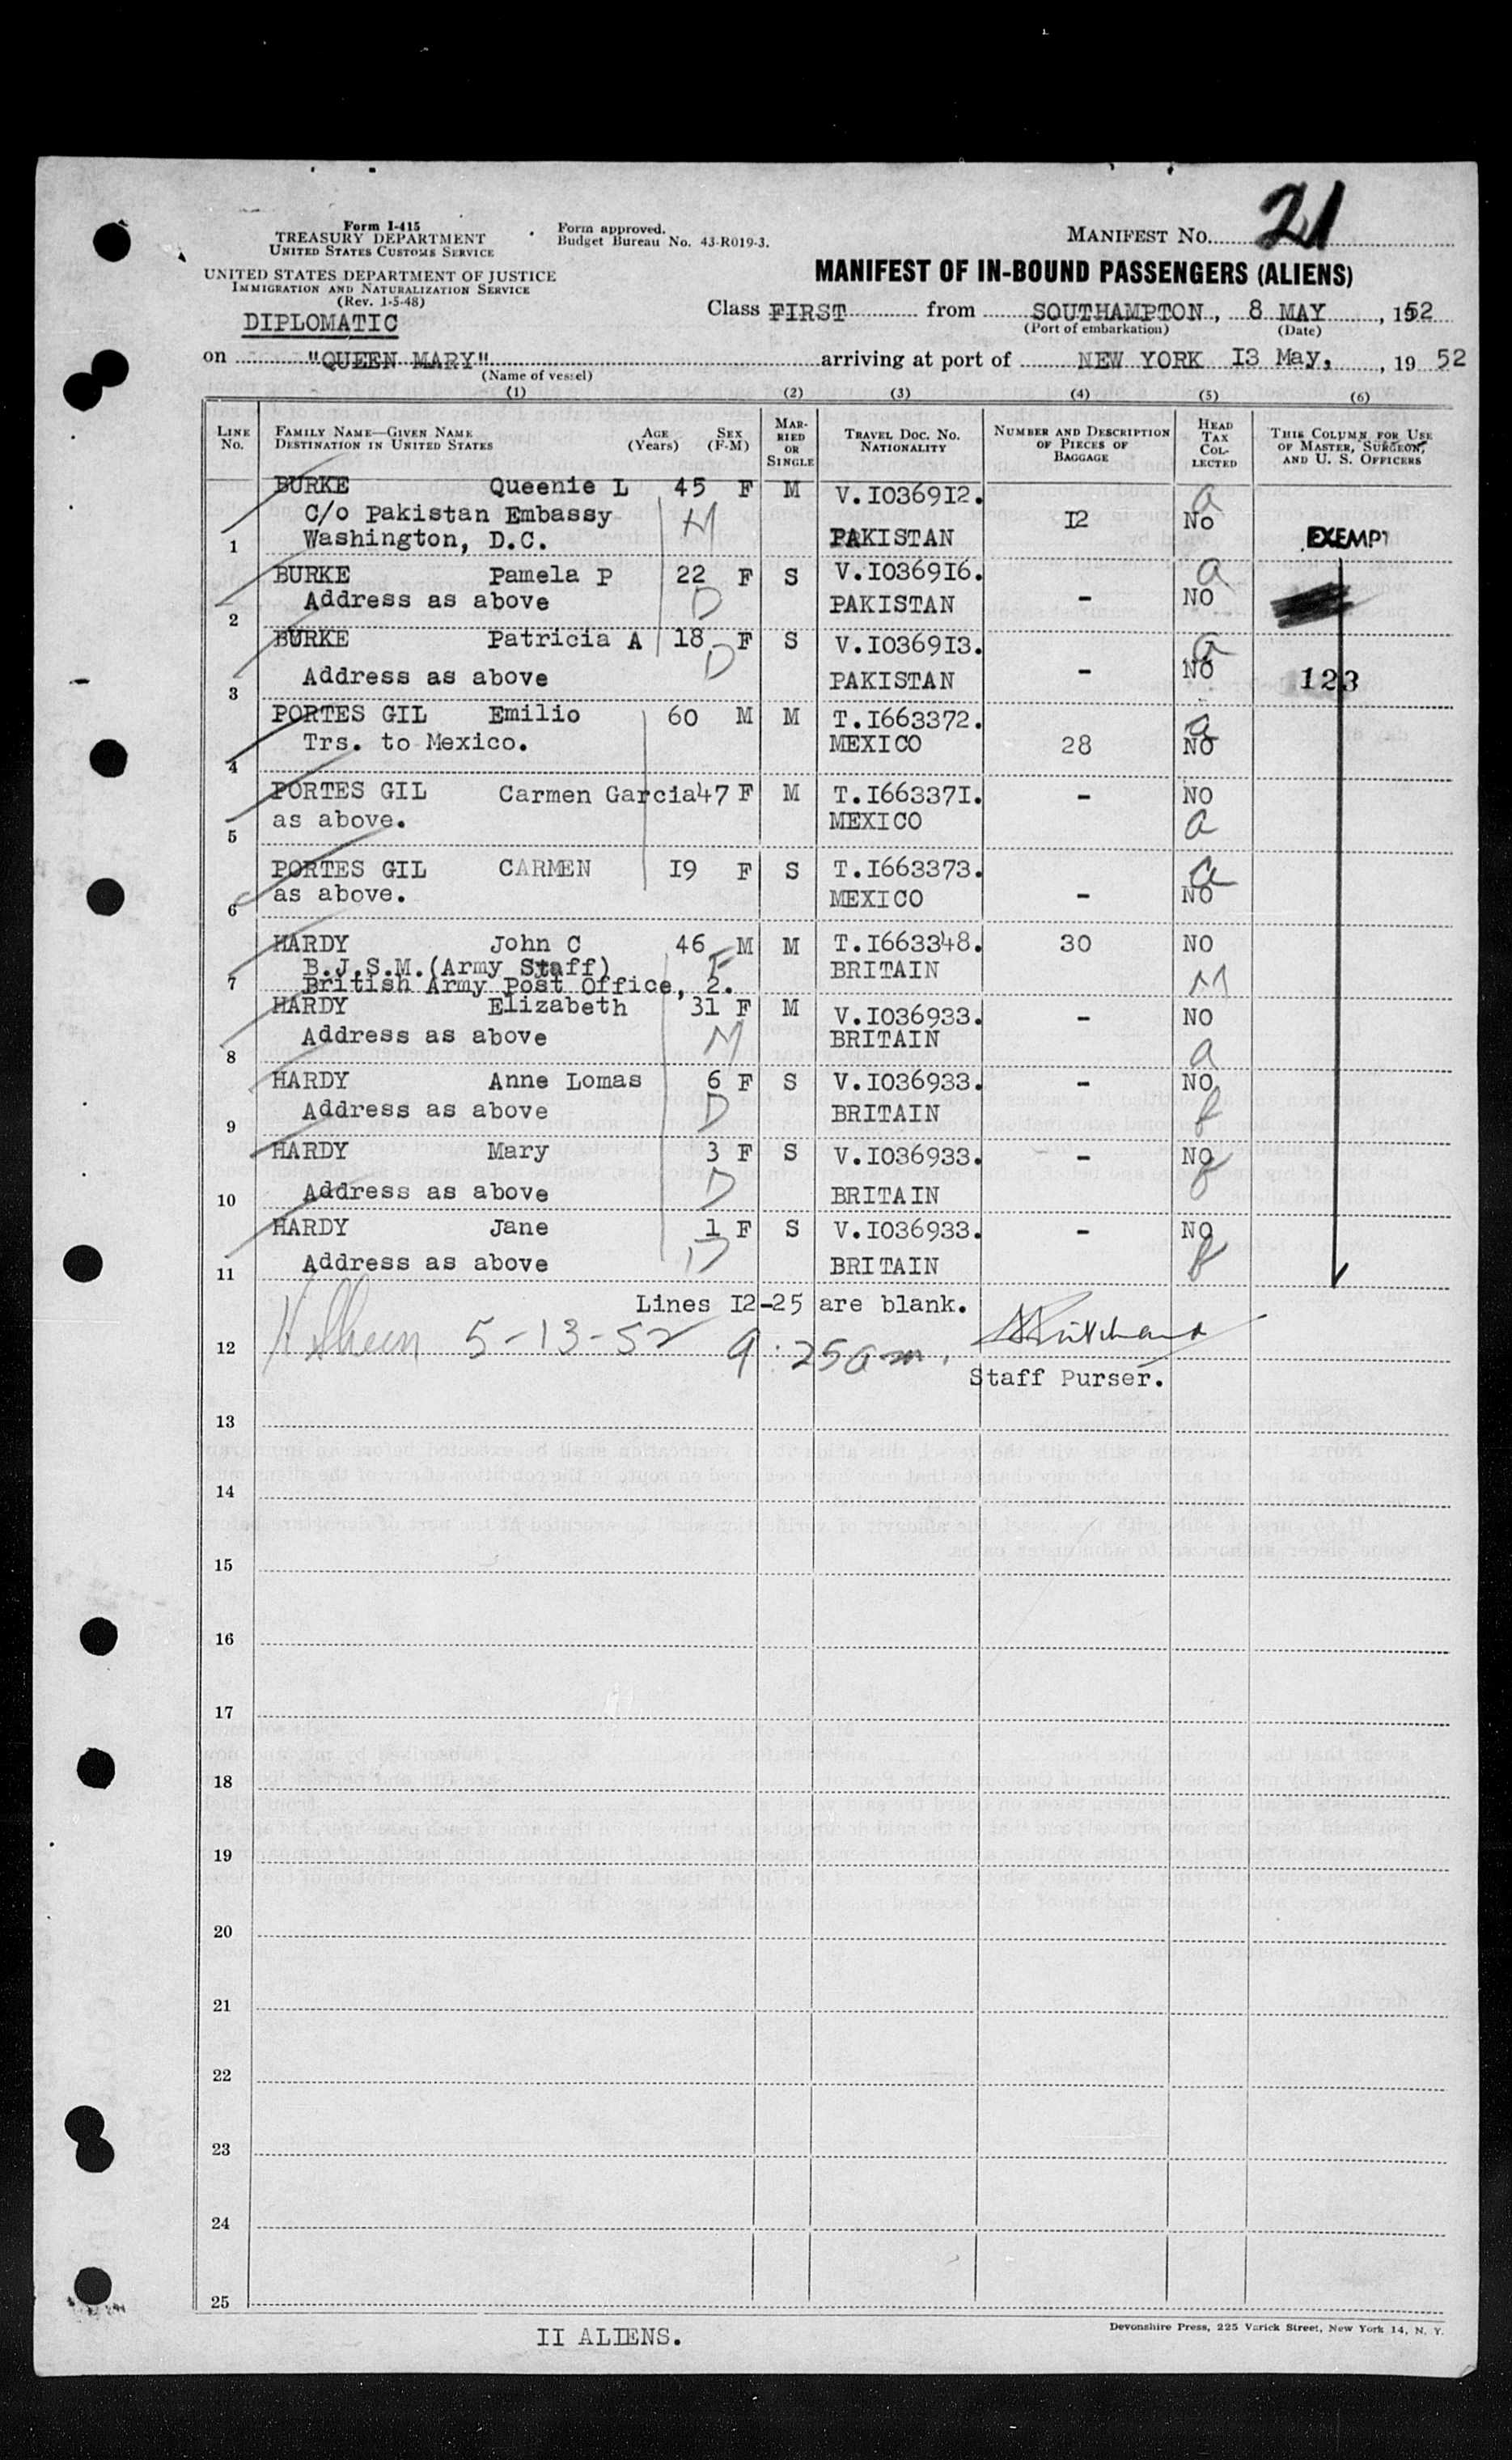 Form I-415
TREASURY DEPARTMENT
UNITED STATES CUSTOMS SERVICE
Form approved.
Budget Bureau No. 43-R019-3.
MANIFEST NO. 21
UNITED STATES DEPARTMENT OF JUSTICE
IMMIGRATION AND NATURALIZATION SERVICE
(Rev. 1-5-48)
MANIFEST OF IN-BOUND PASSENGERS (ALIENS)
DIPLOMATIC
Class FIRST from SOUTHAMPTON, 8 MAY, 1952
(Port of embarkation) (Date)
on "QUEEN MARY" arriving at port of NEW YORK I3 May, 19 52
(Name of vessel)
(1) (2) (3) (4) (5) (6)
LINE No. FAMILY NAME—GIVEN NAME DESTINATION IN UNITED STATES AGE (Years) SEX (F-M) MARRIED OR SINGLE TRAVEL DOC. NO. NATIONALITY NUMBER AND DESCRIPTION OF PIECES OF BAGGAGE HEAD TAX COLLECTED THIS COLUMN FOR USE OF MASTER, SURGEON, AND U. S. OFFICERS
BURKE Queenie L 45 F M V.I0369I2. a
C/o Pakistan Embassy M I2 No
1 Washington, D.C. PAKISTAN EXEMPT
BURKE Pamela P 22 F S V.I0369I6. a
Address as above D PAKISTAN - NO
2
BURKE Patricia A 18 F S V.I0369I3. a
Address as above D PAKISTAN - NO 123
3
PORTES GIL Emilio 60 M M T.I663372. a
Trs. to Mexico. MEXICO 28 NO
4
PORTES GIL Carmen Garcia 47 F M T.I66337I. - NO
as above. MEXICO a
5
PORTES GIL CARMEN I9 F S T.I663373. a
as above. MEXICO - NO
6
HARDY John C 46 M M T.I663348. 30 NO
B.J.S.M.(Army Staff) F BRITAIN
7 British Army Post Office, 2. M
HARDY Elizabeth 31 F M V.I036933. - NO
Address as above M BRITAIN
8 a
HARDY Anne Lomas 6 F S V.I036933. - NO
Address as above D BRITAIN
9
HARDY Mary 3 F S V.I036933. - NO
Address as above D BRITAIN
10
HARDY Jane 1 F S V.I036933. - NO
Address as above D BRITAIN
11
Lines I2-25 are blank.
12 5-13-52 9:25 am.
Staff Purser.
13
14
15
16
17
18
19
20
21
22
23
24
25
II ALIENS.
Devonshire Press, 225 Varick Street, New York 14, N. Y.